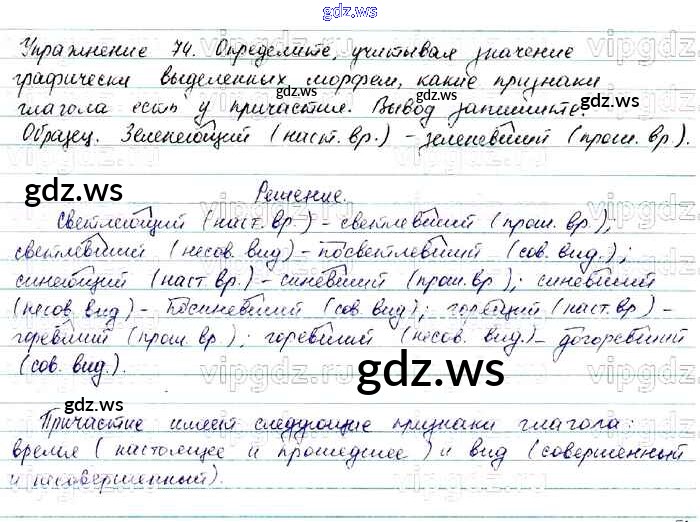 gdz.ws
Упражнение 74. Определите, учитывая значение
графически выделенных морфем, какие признаки
глагола есть у причастия. Вывод запишите.
Образец. Зеленеющий (наст. вр.) – зеленевший (прош. вр.).
Решение.
Светлеющий (наст. вр.) – светлевший (прош. вр.);
светлевший (несов. вид) – посветлевший (сов. вид.);
синеющий (наст вр.) – синевший (прош. вр); синевший
(несов. вид) – посиневший (сов. вид); горящий (наст. вр) –
горевший (прош. вр); горевший (несов. вид.) – догоревший
(сов. вид.).
Причастие имеет следующие признаки глагола:
время (настоящее и прошедшее) и вид (совершенный
и несовершенный).
gdz.ws
gdz.ws
gdz.ws
gdz.ws
gdz.ws
gdz.ws
gdz.ws
vipgdz.ru